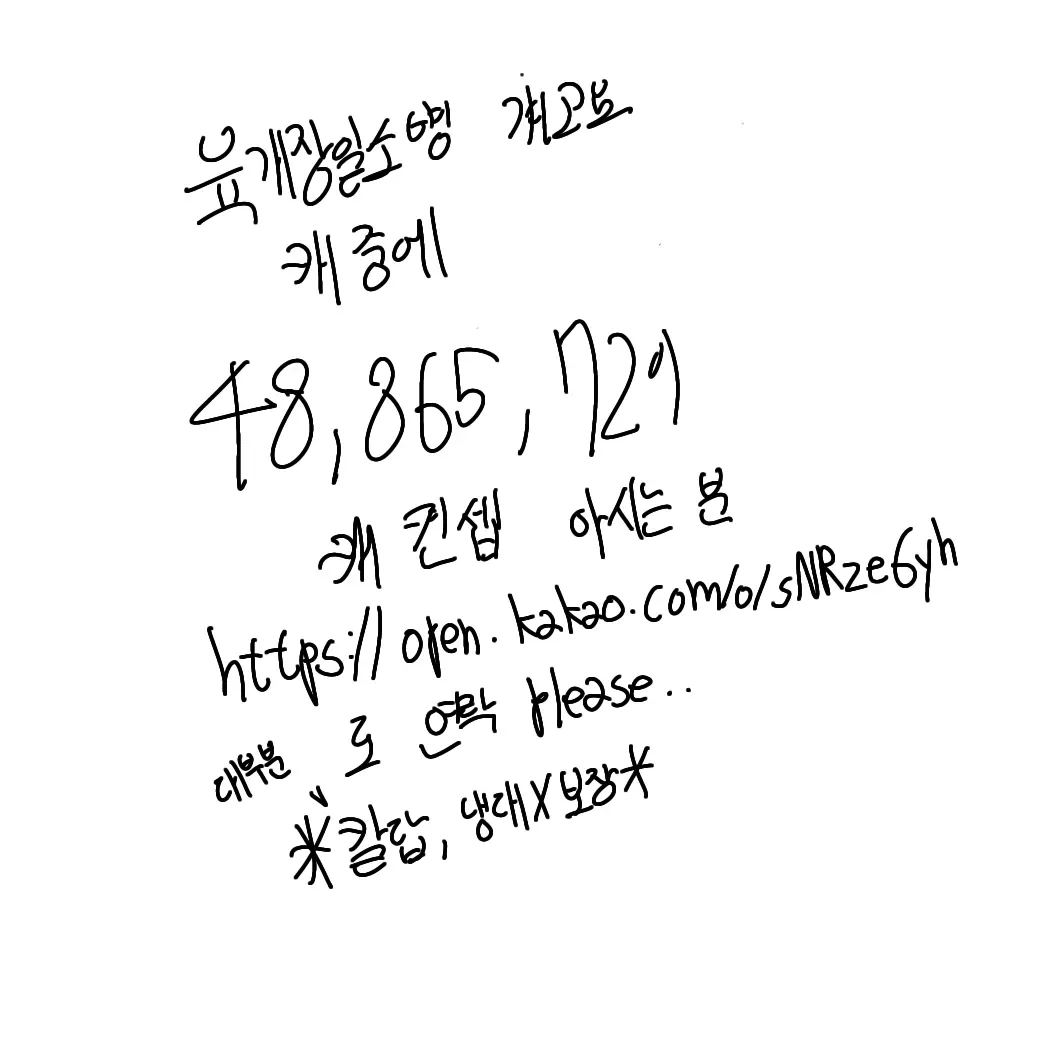 육개장일소명 계고보
캐 중에
48,865,721
캐 컨셉 아시는 분
https://open.kakao.com/o/sNRze6yh
로 연락 please..
대부분
*칼답, 냉대X보장*